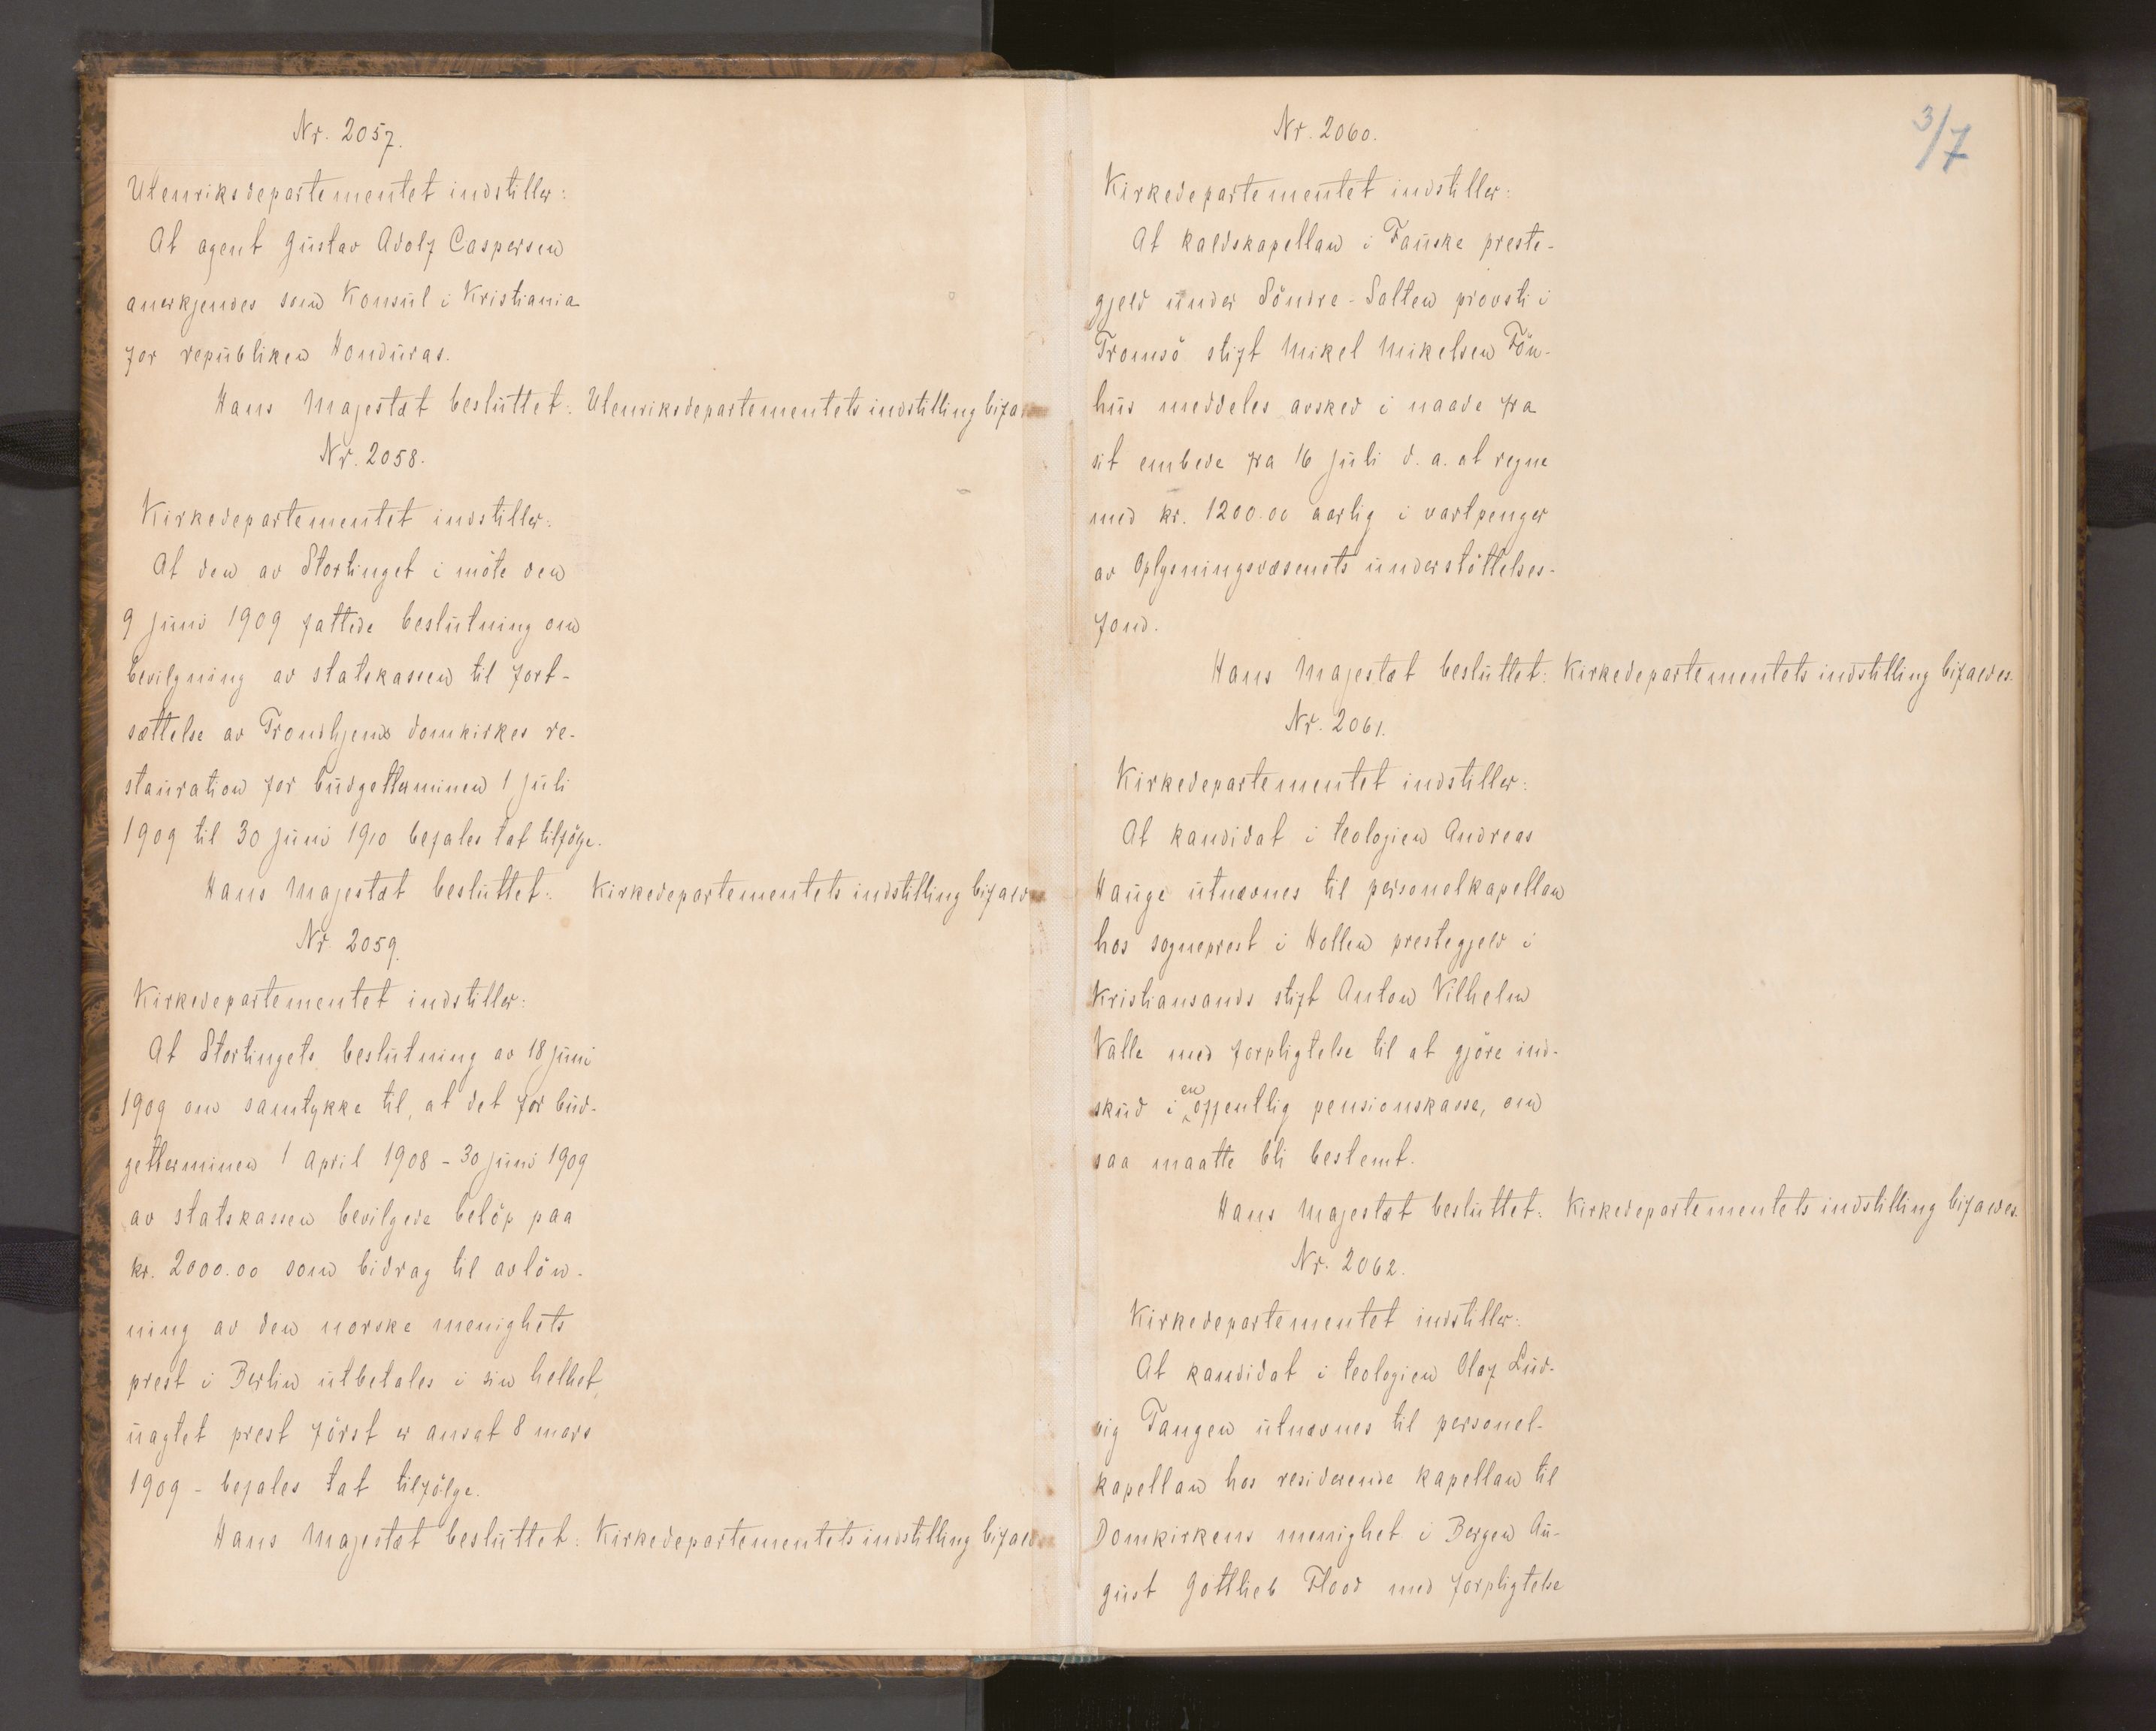 Nr. 2057.
Utenriksdepartementet indstiller:
At agent Gustav Adolf Caspersen
anerkjendes som Konsul i Kristiania
for republiken Honduras.
Hans Majestæt besluttet: Utenriksdepartementets indstilling bifa
Nr. 2058.
Kirkedepartementet indstiller:
At den av Stortinget i möte den
9 juni 1909 fattede beslutning om
bevilgning av statskassen til fort-
sættelse av Trondhjems domkirkes re-
stauration for budgetterminen 1 juli
1909 til 30 juni 1910 befales tat tilfölge.
Hans Majestæt besluttet: Kirkedepartementets indstilling bifald
Nr. 2059.
Kirkedepartementet indstiller:
At Stortingets beslutning av 18 juni
1909 om samtykke til, at det for bud-
getterminen 1 april 1908 - 30 juni 1909
av statskassen bevilgede belöp paa
kr. 2000.00 som bidrag til avlön-
ning av den norske menighets
prest i Berlin utbetales i sin helhet,
uagtet prest först er ansat 8 mars
1909 - befales tat tilfölge.
Hans Majestæt besluttet: Kirkedepartementets indstilling bifald
3/7
Nr. 2060.
Kirkedepartementet indstiller:
At kaldskapellan i Fauske preste-
gjeld under Söndre-Salten provsti i
Tromsö stift Mikel Mikelsen Fön-
hus meddeles avsked i naade fra
sit embede fra 16 juli d. a. at regne
med kr. 1200.00 aarlig i vartpenger
av Oplysningsvæsenets understöttelses-
fond.
Hans Majestæt besluttet: Kirkedepartementets indstilling bifaldes.
Nr. 2061.
Kirkedepartementet indstiller:
At kandidat i teologien Andreas
Hauge utnævnes til personelkapellan
hos sogneprest i Hollen prestegjeld i
Kristiansands stift Anton Vilhelm
Valle med forpligtelse til at gjöre ind-
skud i en offentlig pensionskasse, om
saa maatte bli bestemt.
Hans Majestæt besluttet: Kirkedepartementets indstilling bifaldes.
Nr. 2062.
Kirkedepartementet indstiller:
At kandidat i teologien Olaf Lud-
vig Tangen utnævnes til personel-
kapellan hos residerende kapellan til
Domkirkens menighet i Bergen Au-
gust Gottlieb Flood med forpligtelse